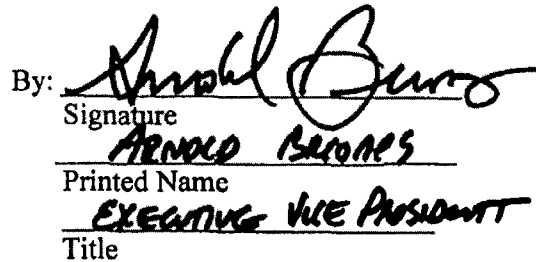 By: Arnold
Signature
ARNOLD
Printed Name
EXECUTIVE VICE PRESIDENT
Title